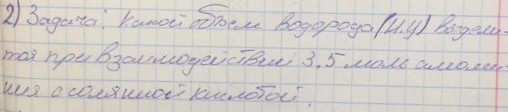 2) Задача: Какой объем водорода (Н.У) выдели-
тся при взаимодействии 3,5 моль алюми-
ния с соляной кислотой.